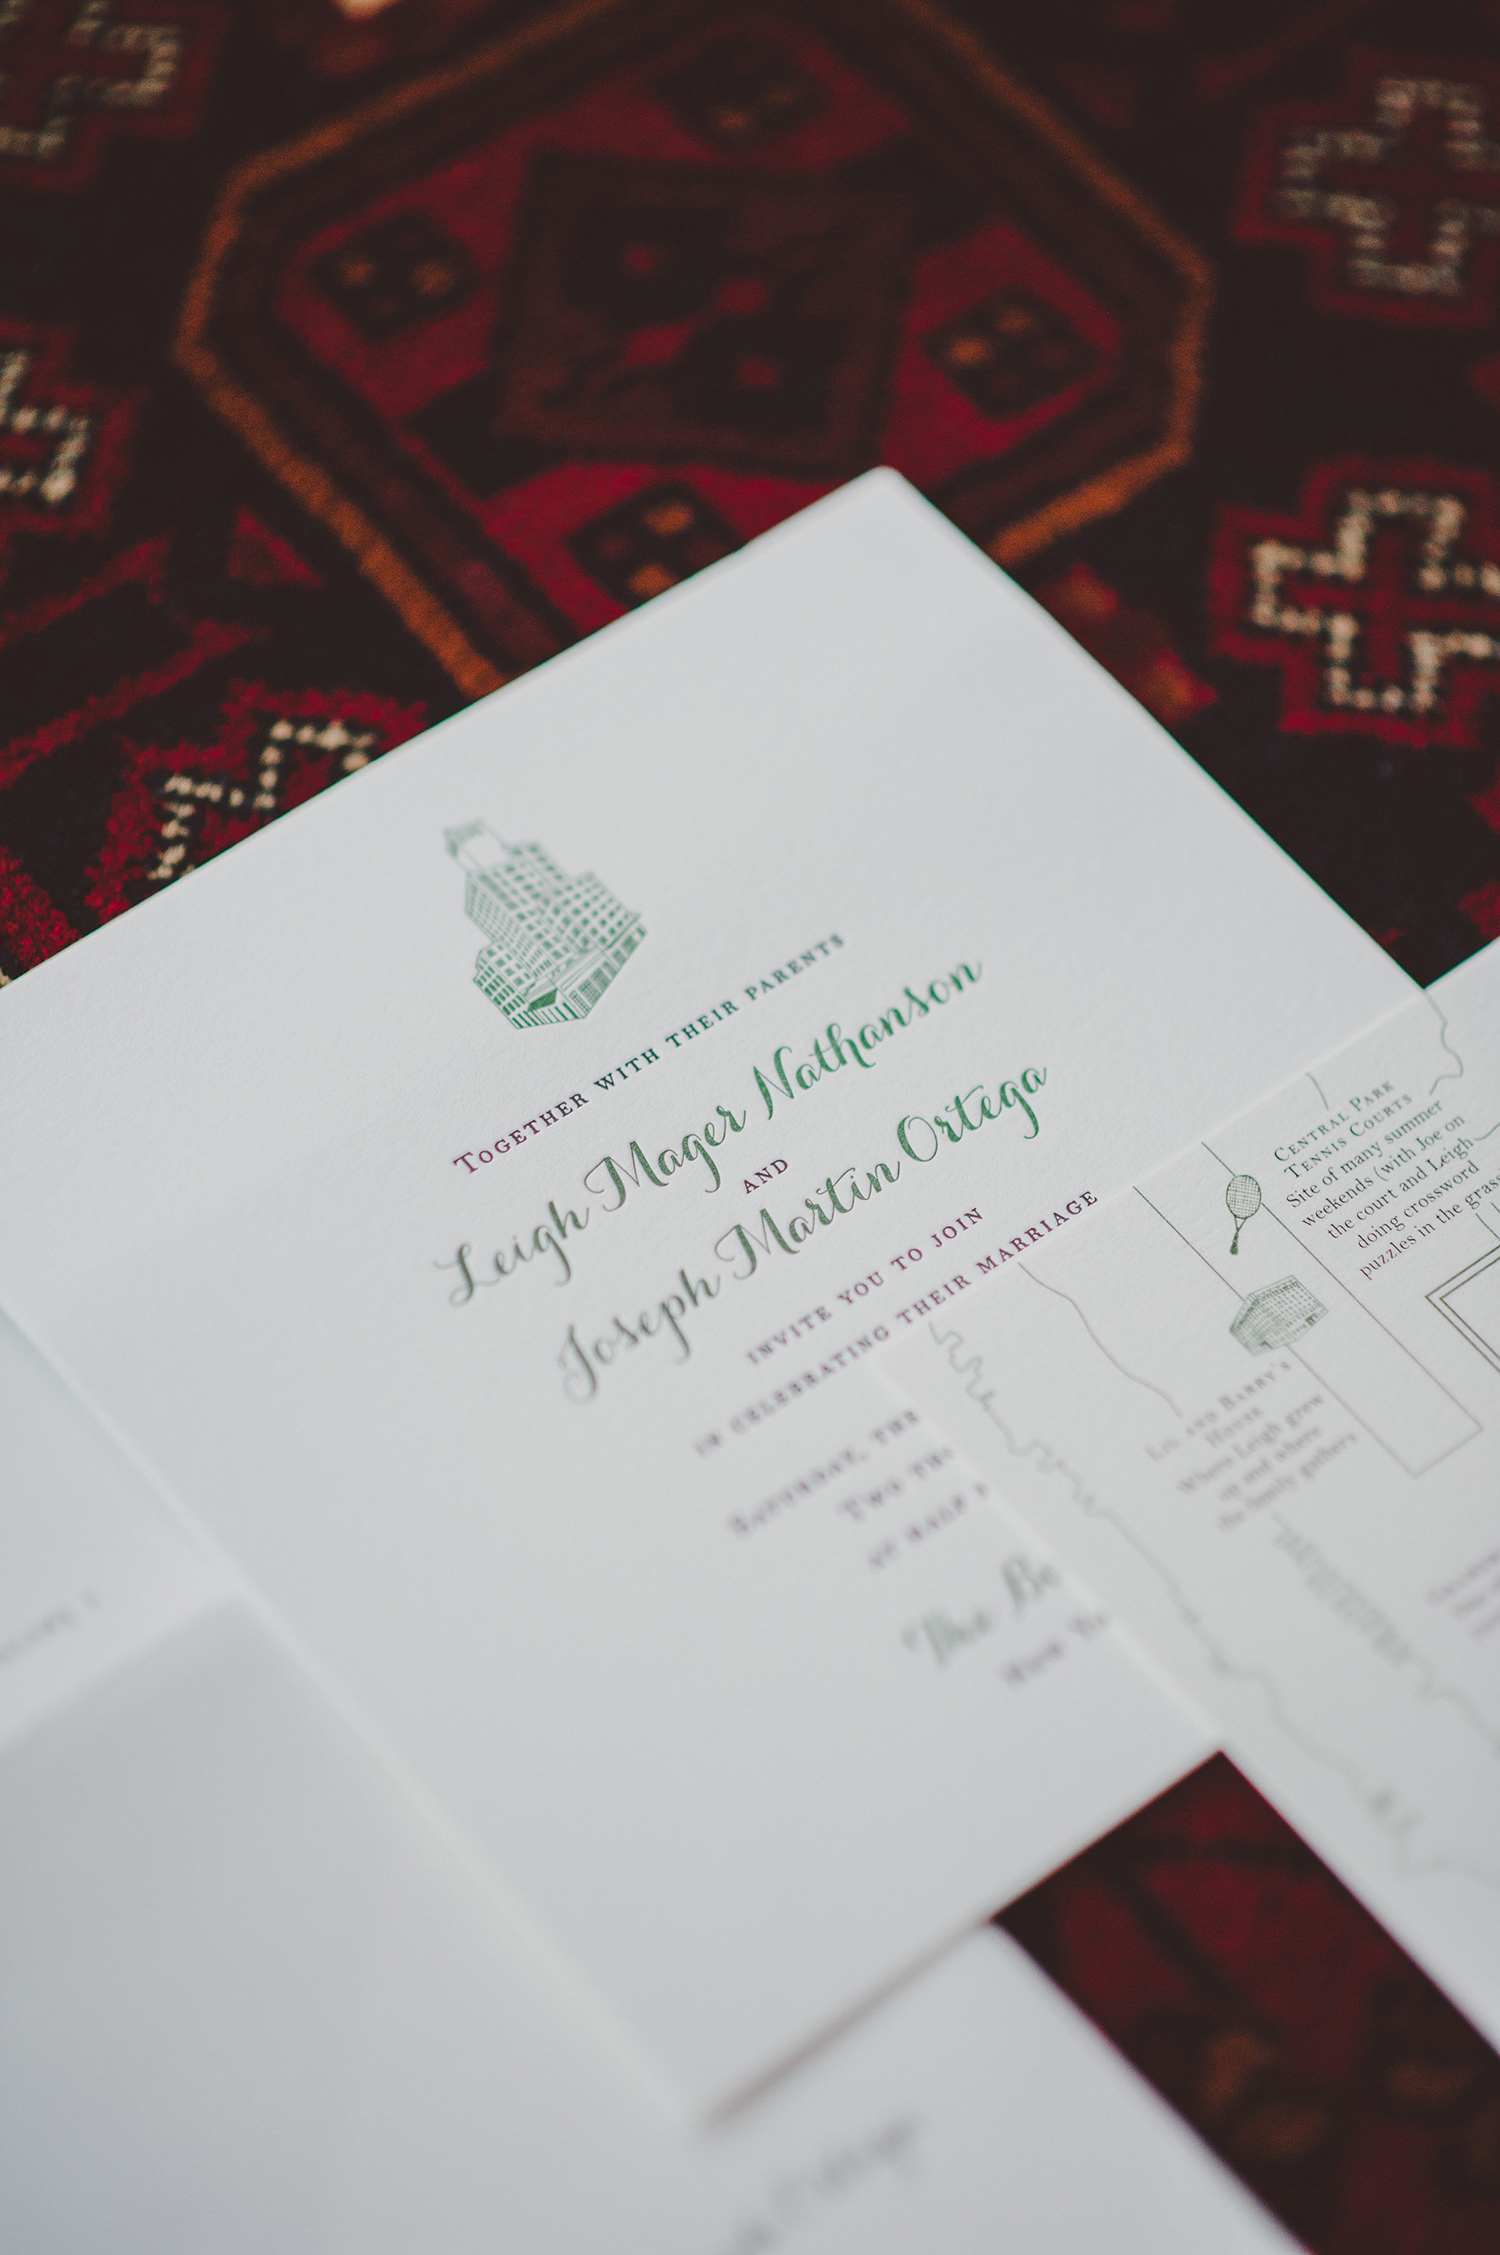 TOGETHER WITH THEIR PARENTS
Leigh Mager Nathanson
AND
Joseph Martin Ortega
INVITE YOU TO JOIN
IN CELEBRATING THEIR MARRIAGE
SATURDAY, THE
TWO
AT HALF
The
NEW
CENTRAL PARK
TENNIS COURTS
Site of many summer
weekends (with Joe on
the court and Leigh
doing crossword
puzzles in the grass
LIL AND BARRY'S
HOUSE
Where Leigh grew
up and where
the family gathers